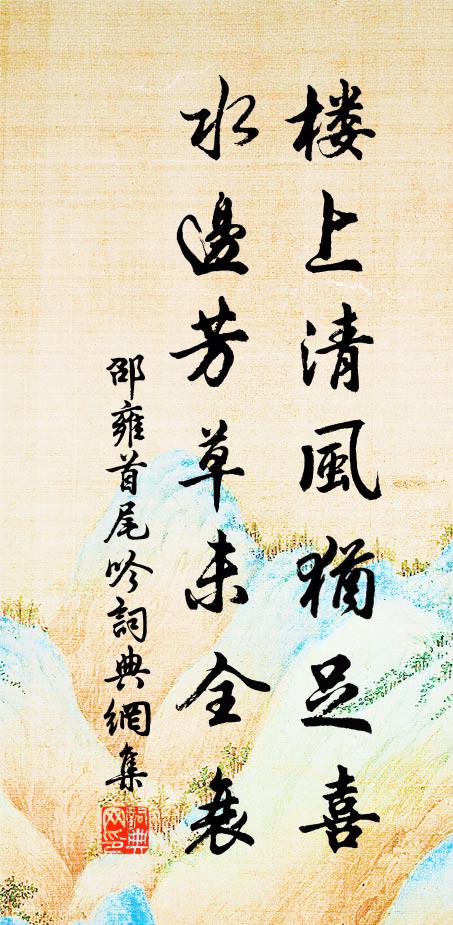 楼上清風猶足喜
水邊芳草未全衰
邵雍首尾吟詞典網集
詞典網印